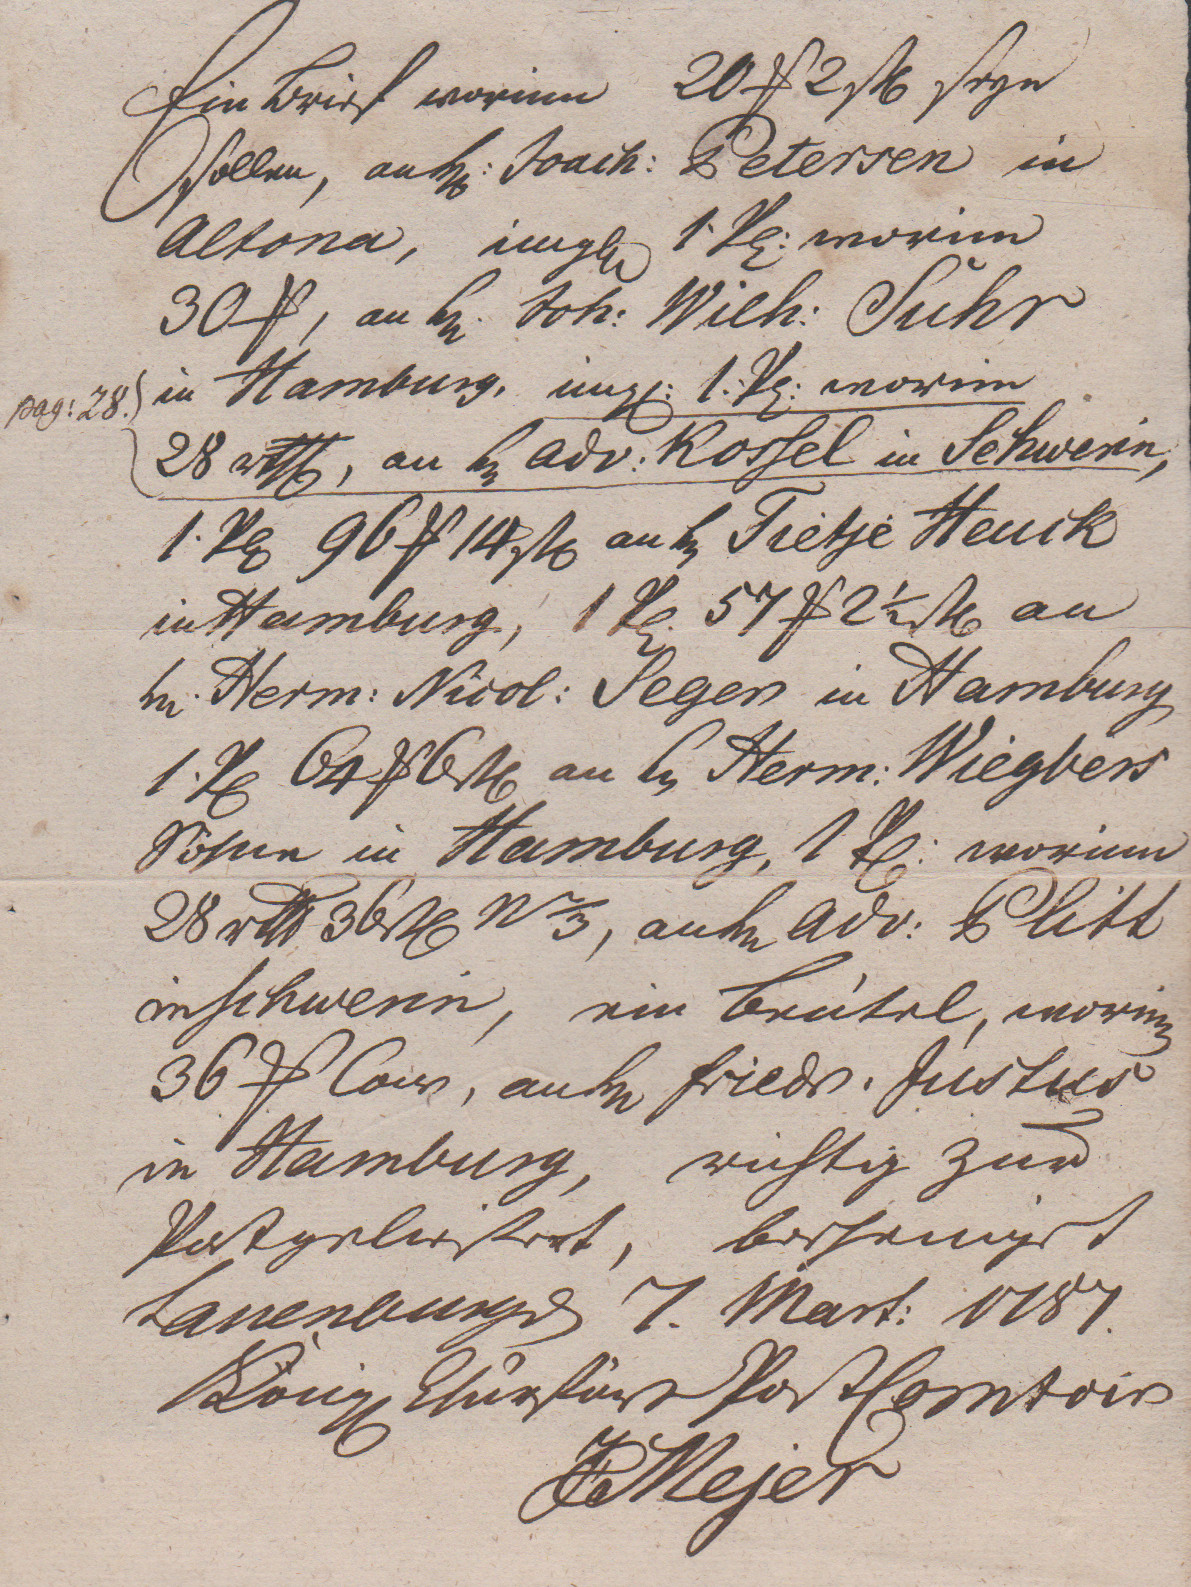 Ein Brief worinn 20 ₰ 2 ß seyn
sollen, an H: Joach: Petersen in
Altona, imgl 1 P: worinn
30 ₰, an H. Joh: Wilh: Suhr
in Hamburg. imgl: 1. P: worinn
pag: 28.
28 rthl, an H Adv: Kossel in Schwerin,
1. P 96 ₰ 14 ß an H Tietje Heuck
in Hamburg, 1 P. 57 ₰ 2½ ß an
H. Herm: Nicol: Seger in Hamburg
1. P 64 ₰ 6 ß an H Herm: Wiegbers
Söhne in Hamburg, 1 P: worinn
28 rthl 36 ß N ⅔, an H Adv: Plitt
in Schwerin, ein Beutel, worinn
36 ₰ Cour, an H Friedr. Justus
in Hamburg, richtig zur
Post geliefert, bescheinigt
Lauenburg d 7. Mart: 1787.
Königl Churfürstl Post Comtoir
Mejer